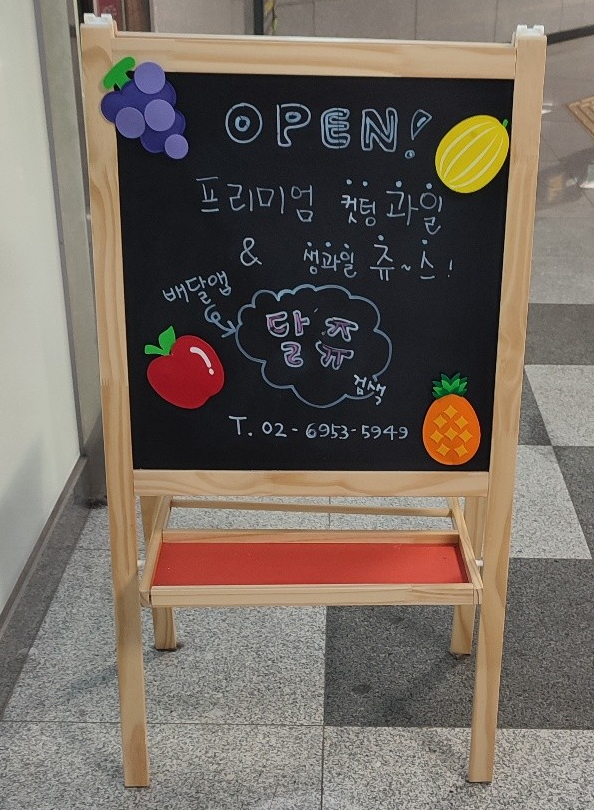 OPEN!
프리미엄 컷팅 과일
& 생과일 쥬~스!
배달앱
달쥬
검색
T. 02-6953-5949